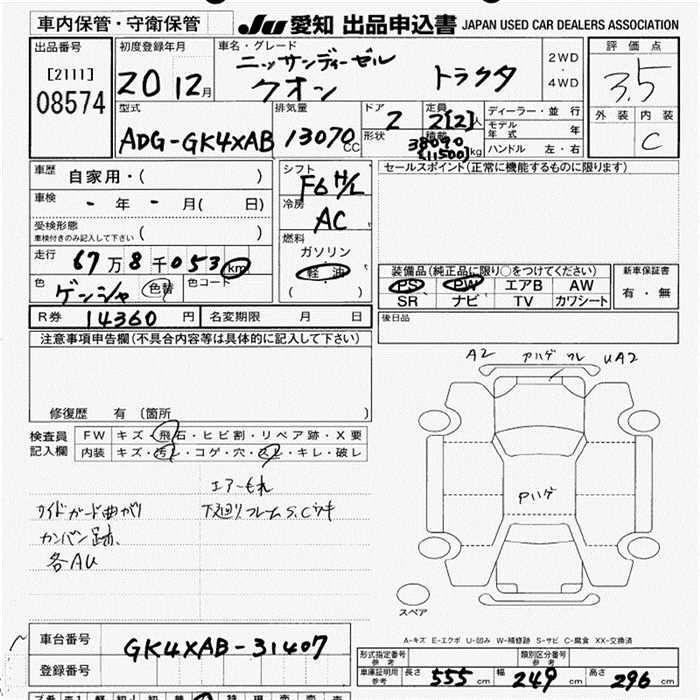 車内保管・守衛保管 JU 愛知 出品申込書 JAPAN USED CAR DEALERS ASSOCIATION
出品番号 初度登録年月 車名・グレード 評価点
[2111] 20 12月 ニッサンディーゼル クオン トラクタ 2WD・4WD 3.5
08574
型式 排気量 ドア 定員 ディーラー・並行 外装 内装
ADG-GK4XAB 13070cc 2 2[2]人 モデル年式 年 C
形状 積載 38090 [11500]kg ハンドル 左・右
車歴 自家用・( ) シフト F6 H/L セールスポイント(正常に機能するものに限ります)
車検 - 年 - 月( 日) 冷房 AC
受検形態
車検付きのみ記入して下さい ( )
燃料
走行 67万8千053km ガソリン
軽油
( )
装備品(純正品に限り○をつけてください) 新車保証書
色 ゲンシャ 色替 色コード PS PW エアB AW 有・無
SR ナビ TV カワシート
R券 14360円 名変期限 月 日 後日品
注意事項申告欄(不具合内容等は具体的に記入して下さい)
A2 アハゲ ワレ UA2
修復歴 有 (箇所 )
検査員 FW キズ・飛石・ヒビ割・リペア跡・X要
記入欄 内装 キズ・汚レ・コゲ・穴・スレ・キレ・破レ
エアーもれ Pハゲ
ワイドガード曲がり 下廻りフレームS.Cウキ
カンバン跡、
各AU
スペア
A-キズ E-エクボ U-凹み W-補修跡 S-サビ C-腐食 XX-交換済
車台番号 GK4XAB-31407
型式指定番号 参考 類別区分番号 参考
登録番号 車庫証明用 参考 長さ 555cm 幅 249cm 高さ 296cm